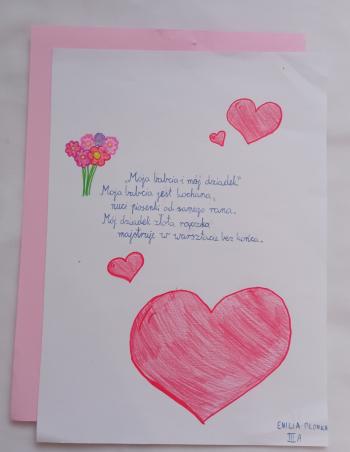 „Moja babcia i mój dziadek"
Moja babcia jest kochana,
nuci piosenki od samego rana.
Mój dziadek złota rączka
majstruje w warsztacie bez końca.
EMILIA
III A